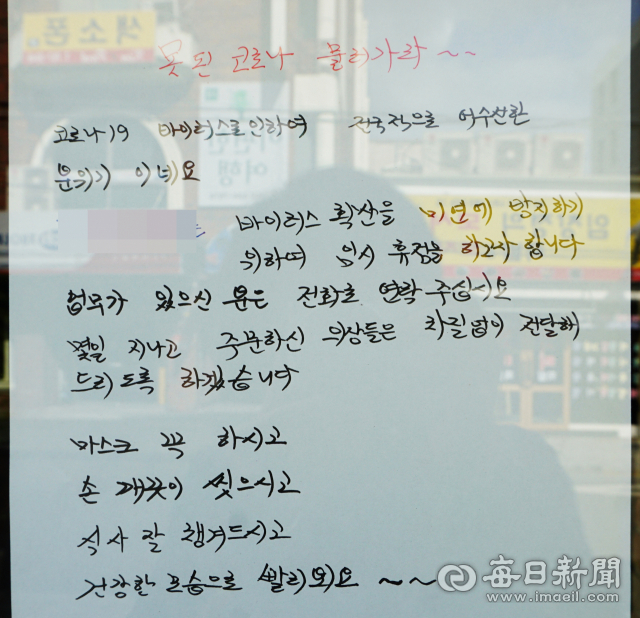 색소폰
못된 코로나 물러가라~~
코로나19 바이러스로인하여 전국적으로 어수선한
분위기 이네요
는 바이러스 확산을 미연에 방지하기
위하여 임시 휴점을 하고자 합니다
업무가 있으신 분은 전화로 연락 주십시요
몇일 지나고 주문하신 의상들은 차질없이 전달해
드리도록 하겠습니다
마스크 꼭 하시고
손 깨끗이 씻으시고
식사 잘 챙겨드시고
건강한 모습으로 뵐리뵈요~~
每日新聞
www.imaeil.com